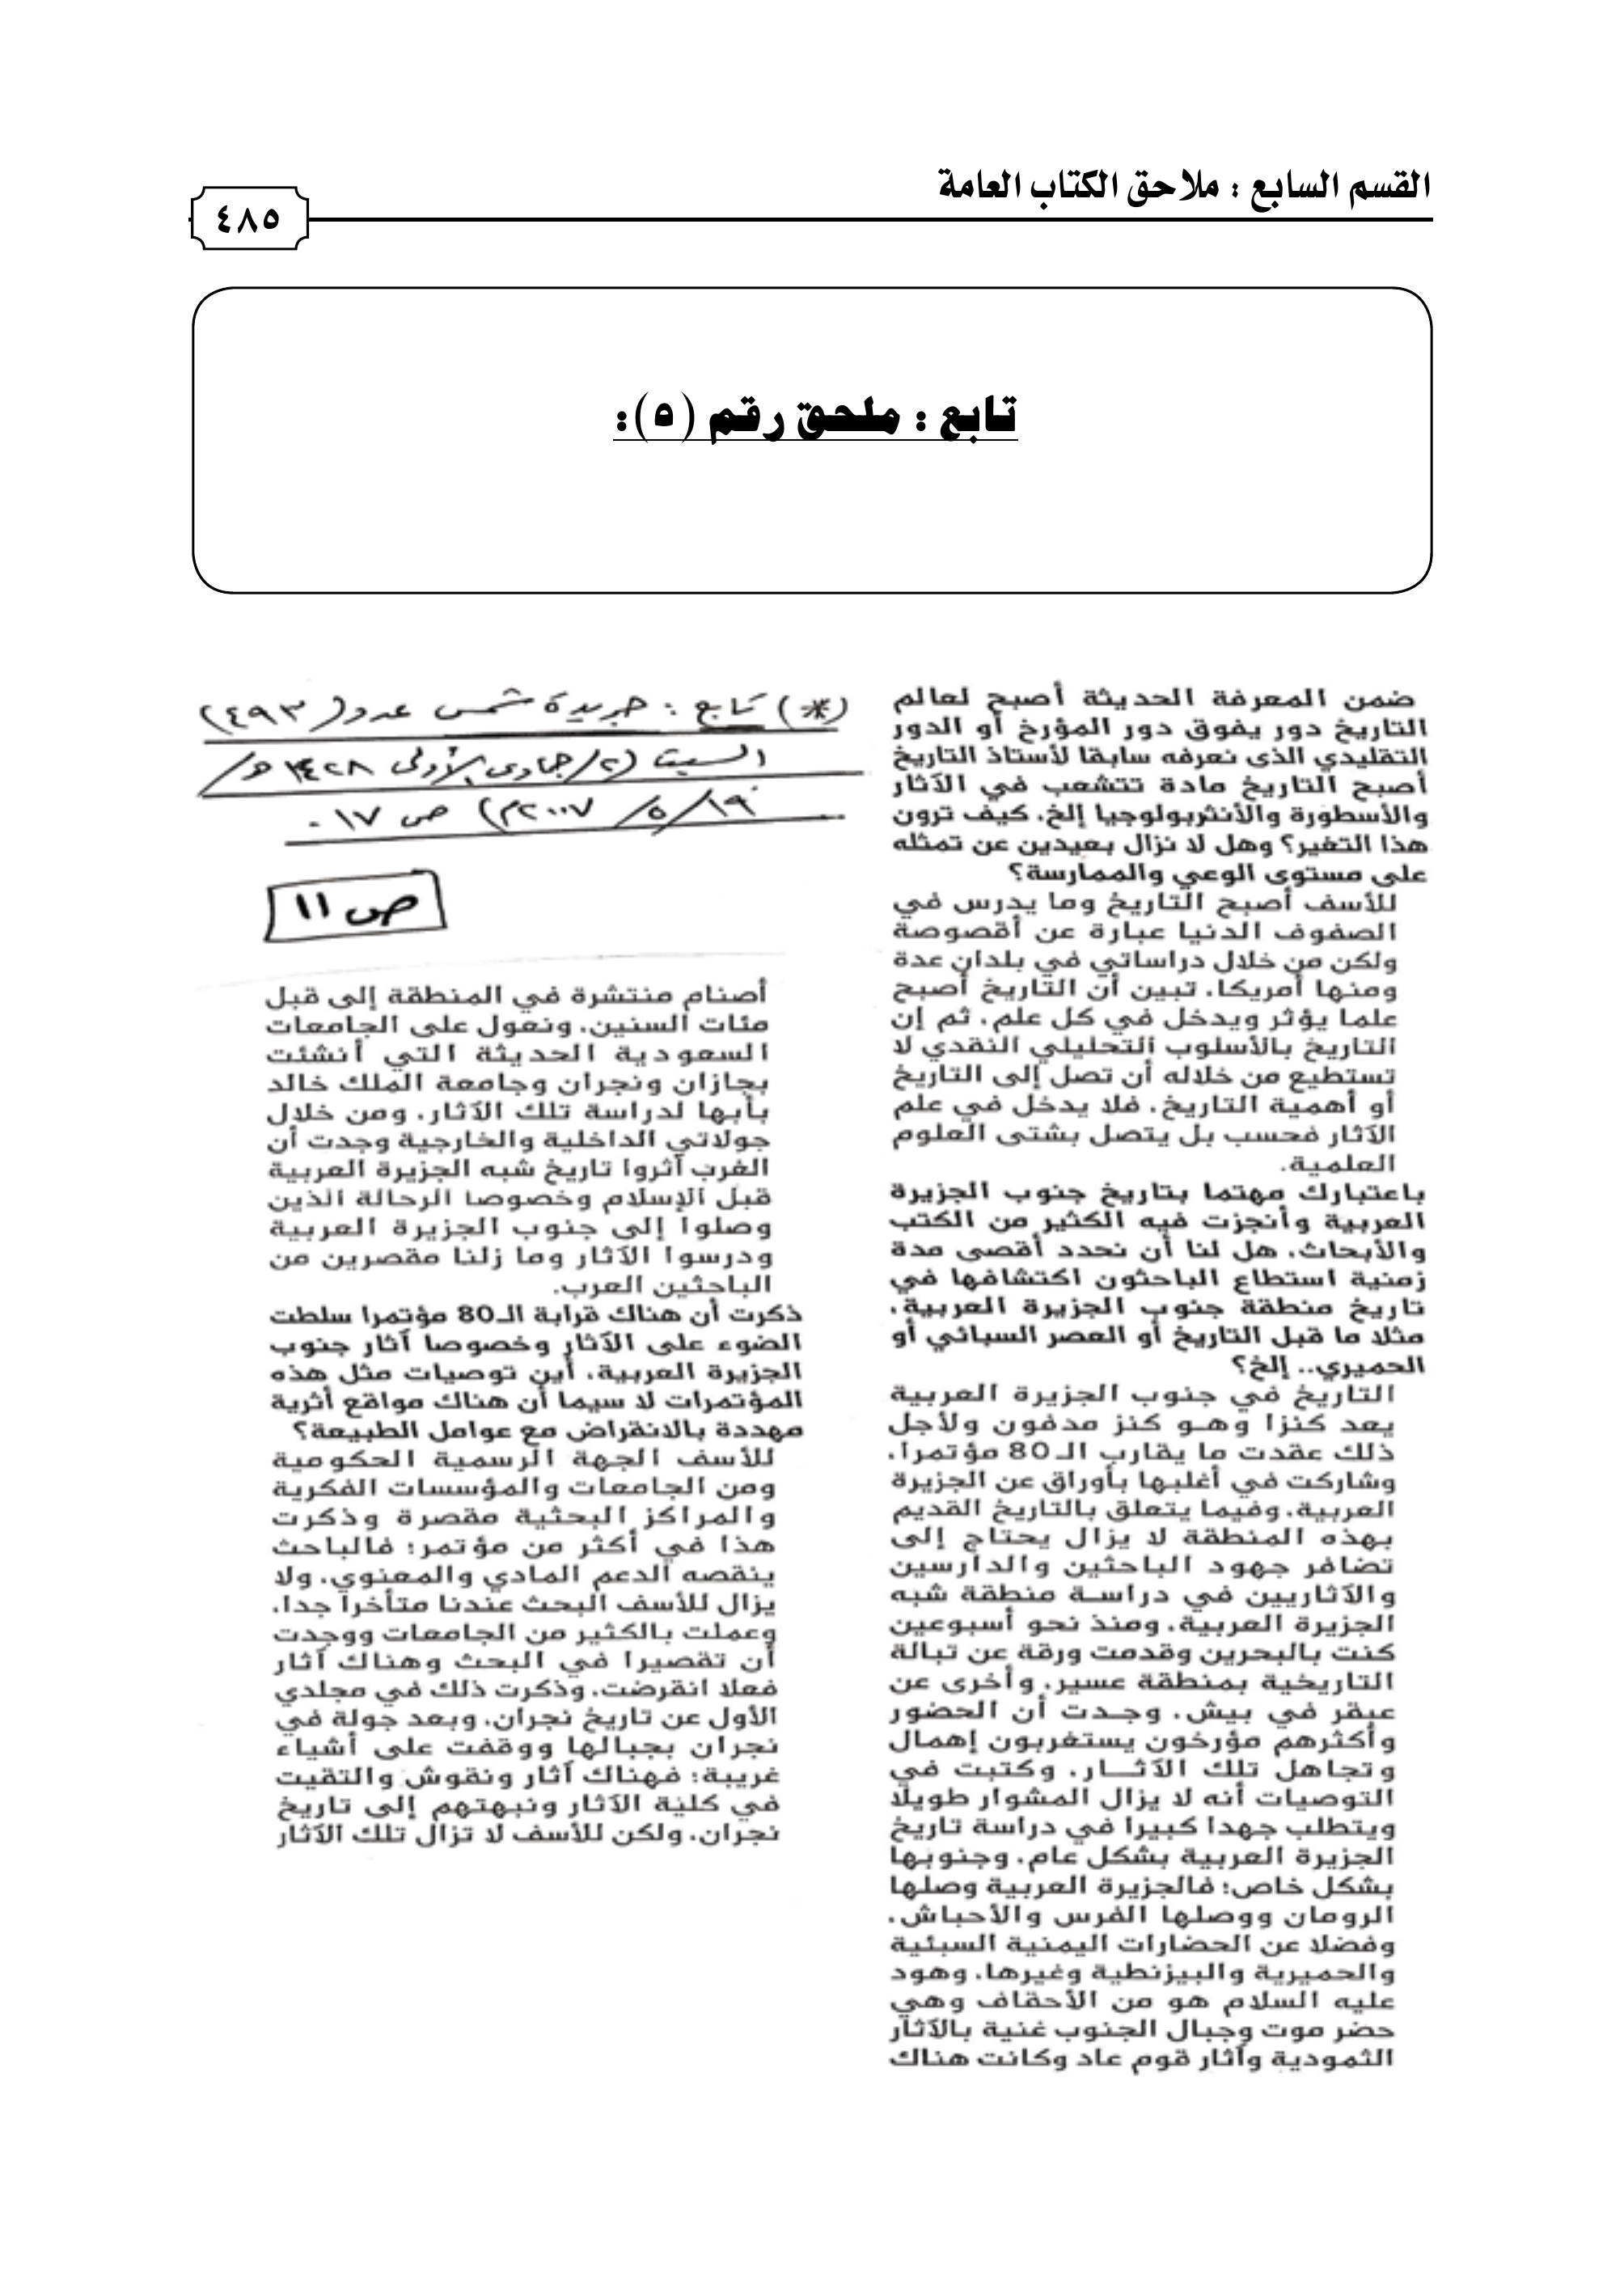 القسم السابع : ملاحق الكتاب العامة
٤٨٥
تابع : ملحق رقم (٥):
ضمن المعرفة الحديثة أصبح لعالم
التاريخ دور يفوق دور المؤرخ أو الدور
التقليدي الذي نعرفه سابقا لأستاذ التاريخ
أصبح التاريخ مادة تتشعب في الآثار
والأسطورة والأنثربولوجيا إلخ. كيف ترون
هذا التغير؟ وهل لا نزال بعيدين عن تمثله
على مستوى الوعي والممارسة؟
للأسف أصبح التاريخ وما يدرس في
الصفوف الدنيا عبارة عن أقصوصة
ولكن من خلال دراساتي في بلدان عدة
ومنها أمريكا. تبين أن التاريخ أصبح
علما يؤثر ويدخل في كل علم. ثم إن
التاريخ بالأسلوب التحليلي النقدي لا
تستطيع من خلاله أن تصل إلى التاريخ
أو أهمية التاريخ. فلا يدخل في علم
الآثار فحسب بل يتصل بشتى العلوم
العلمية.
باعتبارك مهتما بتاريخ جنوب الجزيرة
العربية وأنجزت فيه الكثير من الكتب
والأبحاث. هل لنا أن نحدد أقصى مدة
زمنية استطاع الباحثون اكتشافها في
تاريخ منطقة جنوب الجزيرة العربية.
مثلا ما قبل التاريخ أو العصر السبائي أو
الحميري.. إلخ؟
التاريخ في جنوب الجزيرة العربية
يعد كنزا وهو كنز مدفون ولأجل
ذلك عقدت ما يقارب الـ 80 مؤتمرا.
وشاركت في أغلبها بأوراق عن الجزيرة
العربية. وفيما يتعلق بالتاريخ القديم
بهذه المنطقة لا يزال يحتاج إلى
تضافر جهود الباحثين والدارسين
والآثاريين في دراسة منطقة شبه
الجزيرة العربية. ومنذ نحو أسبوعين
كنت بالبحرين وقدمت ورقة عن تبالة
التاريخية بمنطقة عسير. وأخرى عن
عبقر في بيش. وجدت أن الحضور
وأكثرهم مؤرخون يستغربون إهمال
وتجاهل تلك الآثـار. وكتبت في
التوصيات أنه لا يزال المشوار طويلا
ويتطلب جهدا كبيرا في دراسة تاريخ
الجزيرة العربية بشكل عام. وجنوبها
بشكل خاص؛ فالجزيرة العربية وصلها
الرومان ووصلها الفرس والأحباش.
وفضلا عن الحضارات اليمنية السبئية
والحميرية والبيزنطية وغيرها. وهود
عليه السلام هو من الأحقاف وهي
حضر موت وجبال الجنوب غنية بالآثار
الثمودية وآثار قوم عاد وكانت هناك
(*) تابع : جريدة شمس عدد (٤٩٣)
السبت (٢/جمادى الأولى ١٤٢٨هـ/
١٩/ ٥/ ٢٠٠٧م) ص ١٧.
ص ١١
أصنام منتشرة في المنطقة إلى قبل
مئات السنين. ونعول على الجامعات
السعودية الحديثة التي أنشئت
بجازان ونجران وجامعة الملك خالد
بأبها لدراسة تلك الآثار. ومن خلال
جولاتي الداخلية والخارجية وجدت أن
الغرب أثروا تاريخ شبه الجزيرة العربية
قبل الإسلام وخصوصا الرحالة الذين
وصلوا إلى جنوب الجزيرة العربية
ودرسوا الآثار وما زلنا مقصرين من
الباحثين العرب.
ذكرت أن هناك قرابة الـ80 مؤتمرا سلطت
الضوء على الآثار وخصوصا آثار جنوب
الجزيرة العربية. أين توصيات مثل هذه
المؤتمرات لا سيما أن هناك مواقع أثرية
مهددة بالانقراض مع عوامل الطبيعة؟
للأسف الجهة الرسمية الحكومية
ومن الجامعات والمؤسسات الفكرية
والمراكز البحثية مقصرة وذكرت
هذا في أكثر من مؤتمر؛ فالباحث
ينقصه الدعم المادي والمعنوي. ولا
يزال للأسف البحث عندنا متأخرا جدا.
وعملت بالكثير من الجامعات ووجدت
أن تقصيرا في البحث وهناك آثار
فعلا انقرضت. وذكرت ذلك في مجلدي
الأول عن تاريخ نجران. وبعد جولة في
نجران بجبالها ووقفت على أشياء
غريبة؛ فهناك آثار ونقوش والتقيت
في كلية الآثار ونبهتهم إلى تاريخ
نجران. ولكن للأسف لا تزال تلك الآثار